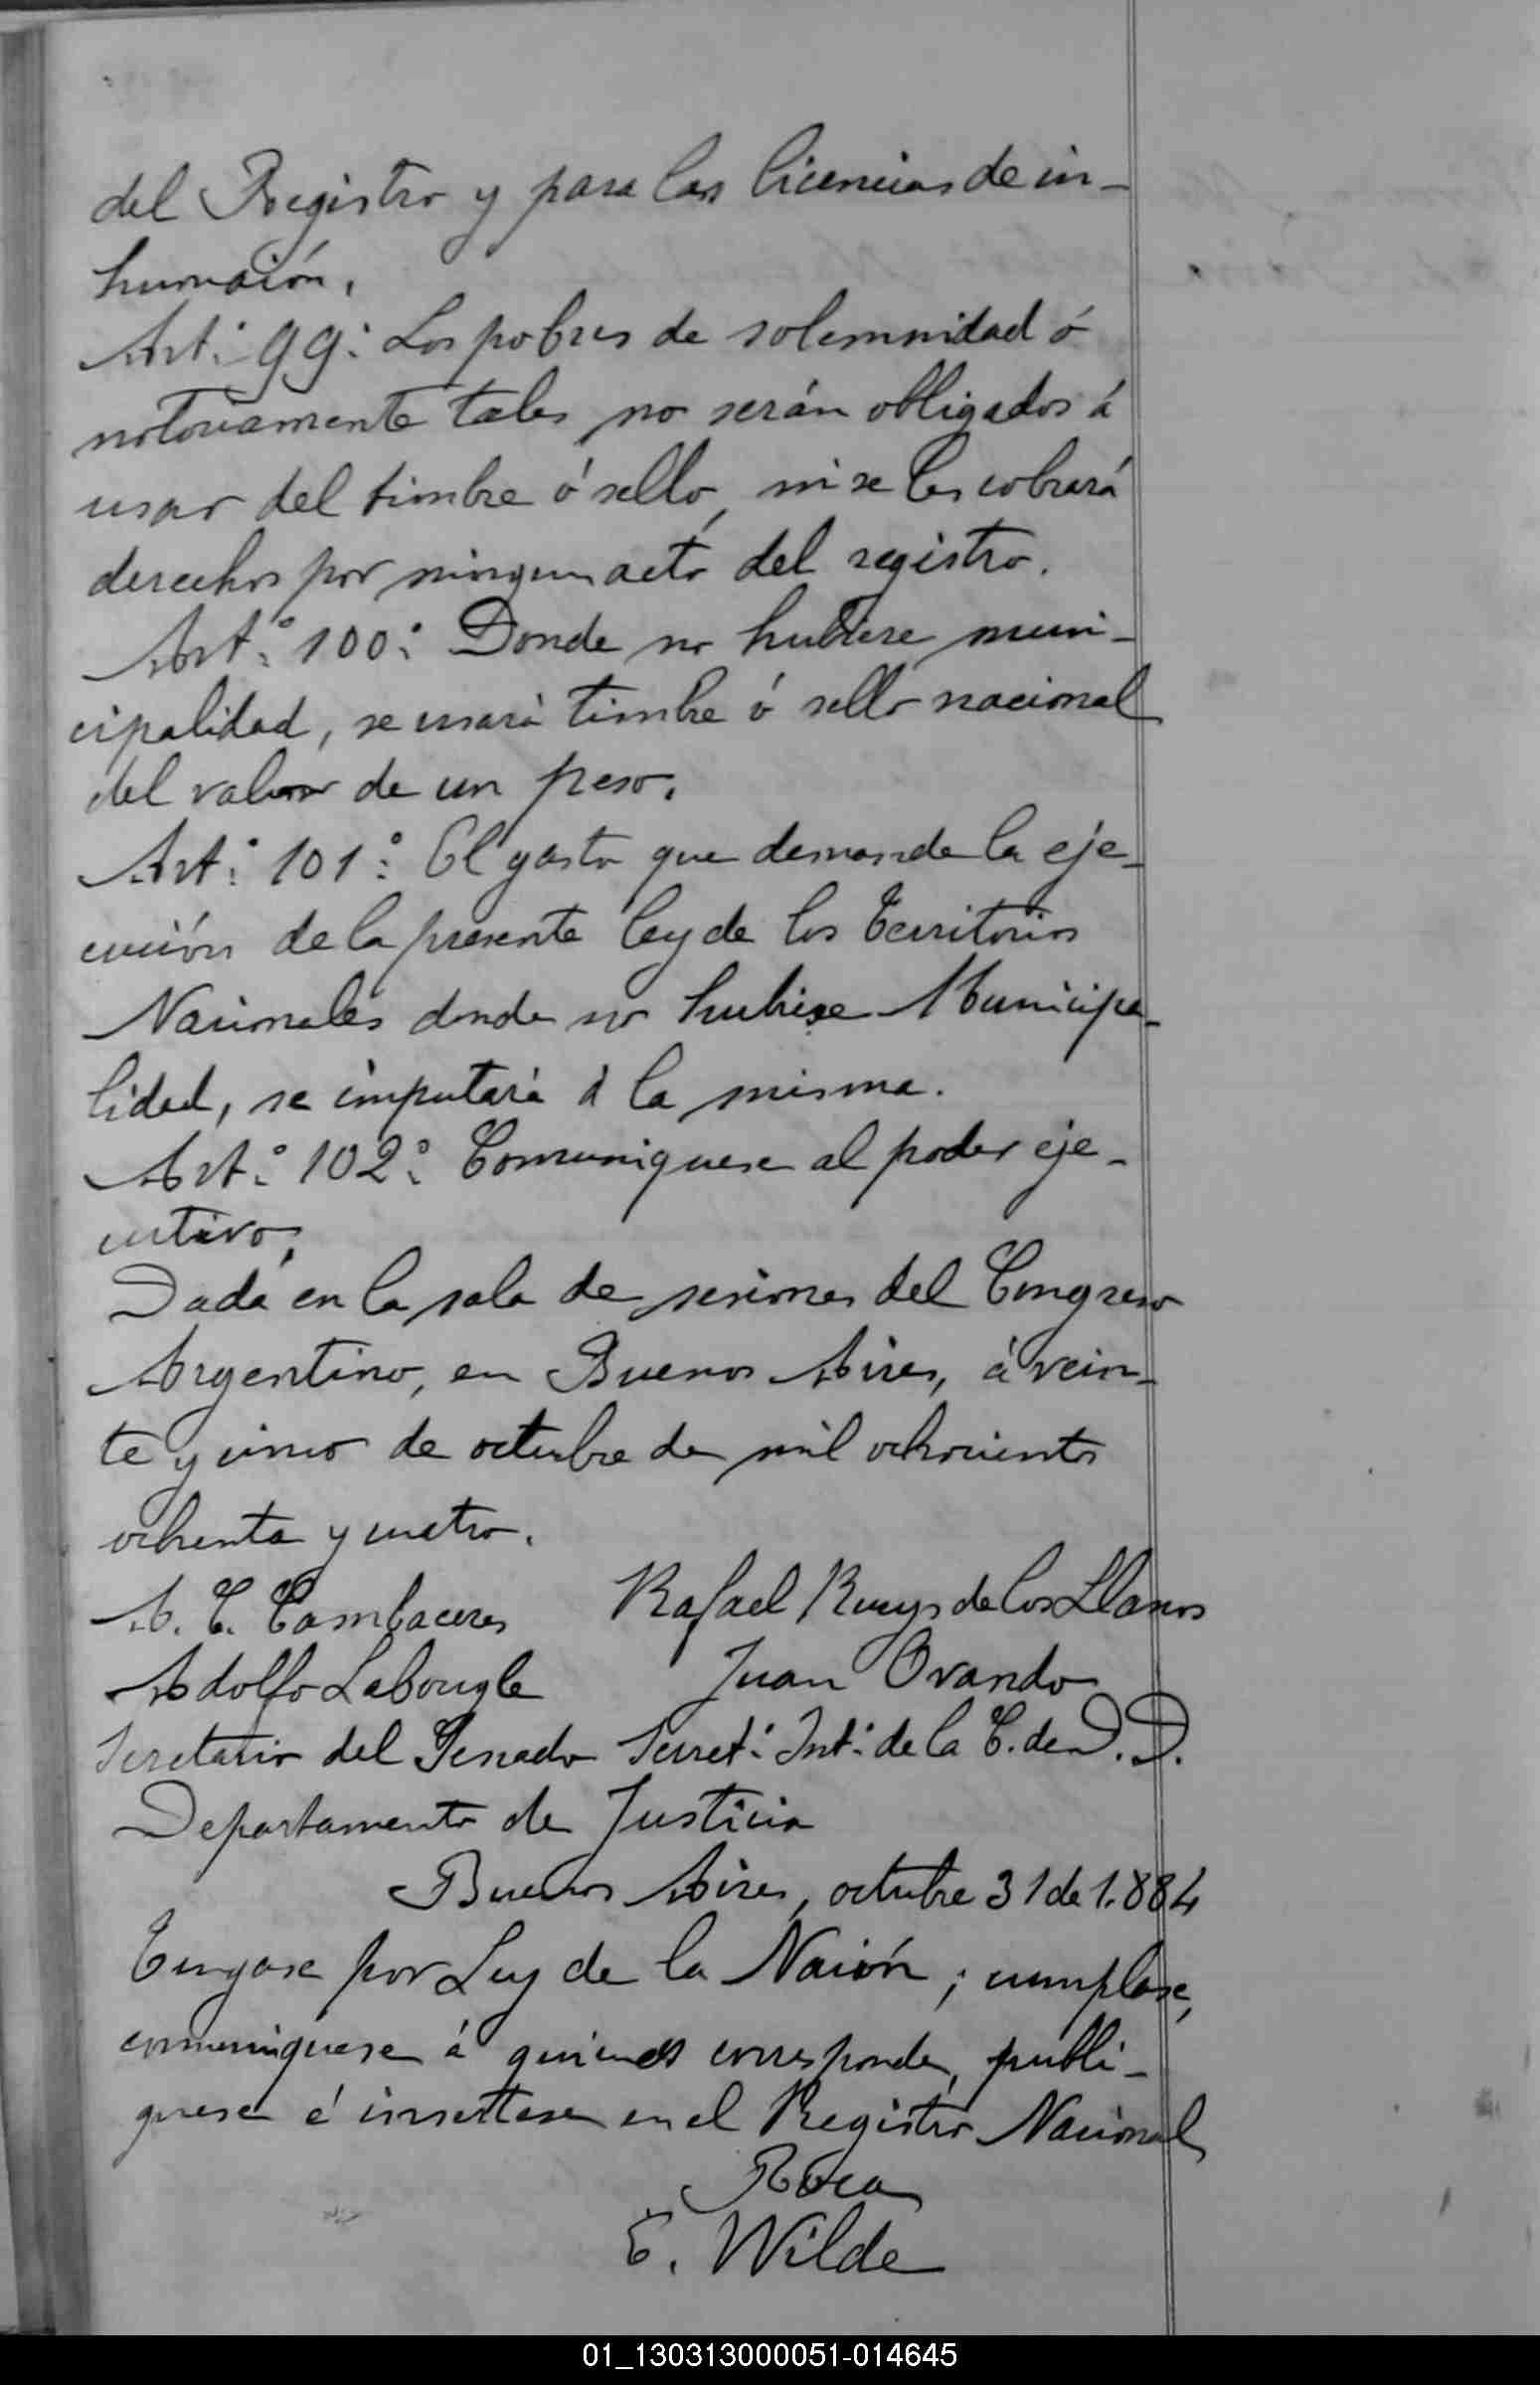 del Registro y para las licencias de in-
humación.
Art.º 99.º Los pobres de solemnidad ó
notoriamente tales no serán obligados á
usar del timbre ó sello, ni se les cobrará
derechos por ningun acto del registro.
Art.º 100.º Donde no hubiere muni-
cipalidad, se usará timbre ó sello nacional
del valor de un peso.
Art.º 101.º El gasto que demande la eje-
cución de la presente ley de los Territorios
Nacionales donde no hubiese Municipa-
lidad, se imputará á la misma.
Art.º 102.º Comuniquese al poder eje-
cutivo.
Dada en la sala de sesiones del Congreso
Argentino, en Buenos Aires, á vein-
te y cinco de octubre de mil ochocientos
ochenta y cuatro.
A. C. Cambaceres Rafael Ruiys de los Llanos
Adolfo Labougle Juan Ovando
Secretario del Senado Secret.º Int.º de la C. de D. D.
Departamento de Justicia
Buenos Aires, octubre 31 de 1.884
Tengase por Ley de la Nación; cumplase,
comuniquese á quienes corresponde, publi-
quese é insertese en el Registro Nacional
Roca
E. Wilde
01_130313000051-014645